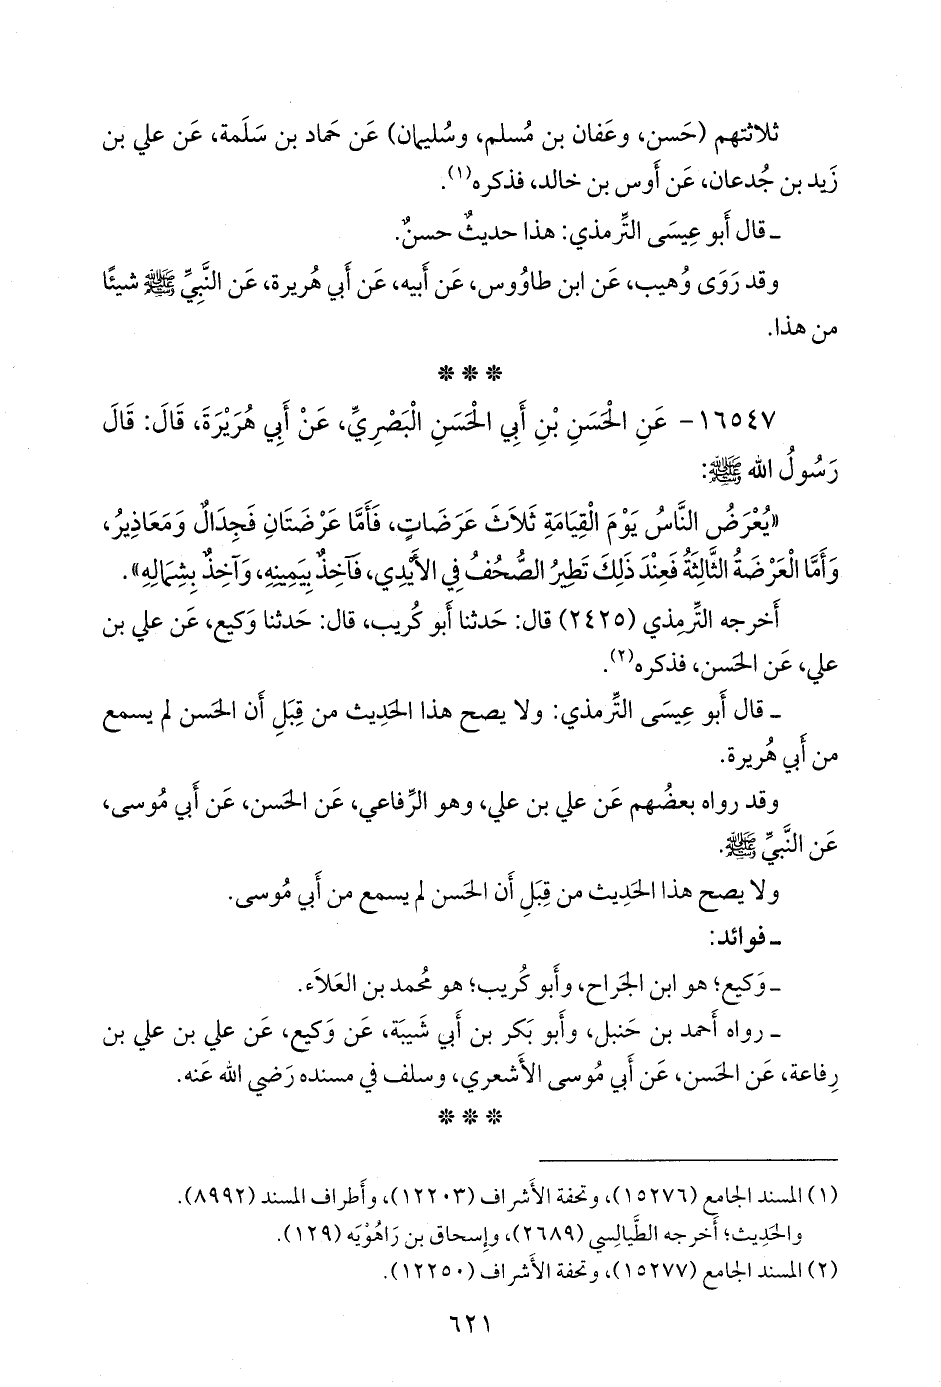 ثلاثتهم (حَسن، وعَفان بن مُسلم، وسُليمان) عَن حَماد بن سَلَمة، عَن علي بن
زَيد بن جُدعان، عَن أَوس بن خالد، فذكره(١).
ـ قال أَبو عِيسَى التِّرمذي: هذا حديثٌ حسنٌ.
وقد رَوَى وُهيب، عَن ابن طاوُوس، عَن أَبيه، عَن أَبي هُريرة، عَن النَّبيِّ ﷺ شيئًا
من هذا.
* * *
١٦٥٤٧- عَنِ الْحَسَنِ بْنِ أَبِي الْحَسَنِ الْبَصْرِيِّ، عَنْ أَبِي هُرَيْرَةَ، قَالَ: قَالَ
رَسُولُ الله ﷺ:
«يُعْرَضُ النَّاسُ يَوْمَ الْقِيَامَةِ ثَلَاثَ عَرَضَاتٍ، فَأَمَّا عَرْضَتَانِ فَجِدَالٌ وَمَعَاذِيرُ،
وَأَمَّا الْعَرْضَةُ الثَّالِثَةُ فَعِنْدَ ذَلِكَ تَطِيرُ الصُّحُفُ فِي الأَيْدِي، فَآخِذٌ بِيَمِينِهِ، وَآخِذٌ بِشِمَالِهِ».
أَخرجه التِّرمِذي (٢٤٢٥) قال: حَدثنا أَبو كُريب، قال: حَدثنا وَكيع، عَن علي بن
علي، عَن الحَسن، فذكره(٢).
ـ قال أَبو عِيسَى التِّرمذي: ولا يصح هذا الحَدِيث من قِبَلِ أَن الحَسن لم يسمع
من أَبي هُريرة.
وقد رواه بعضُهم عَن علي بن علي، وهو الرِّفاعي، عَن الحَسن، عَن أَبي مُوسى،
عَن النَّبيِّ ﷺ.
ولا يصح هذا الحَدِيث من قِبَلِ أَن الحَسن لم يسمع من أَبي مُوسى.
ـ فوائد:
ـ وَكيع؛ هو ابن الجَراح، وأَبو كُريب؛ هو مُحمد بن العَلاَء.
ـ رواه أَحمد بن حَنبل، وأَبو بَكر بن أَبي شَيبَة، عَن وَكيع، عَن علي بن علي بن
رِفاعة، عَن الحَسن، عَن أَبي مُوسى الأَشعري، وسلف في مسنده رَضي الله عَنه.
* * *
(١) المسند الجامع (١٥٢٧٦)، وتحفة الأَشراف (١٢٢٠٣)، وأَطراف المسند (٨٩٩٢).
والحَدِيث؛ أَخرجه الطَّيالِسي (٢٦٨٩)، وإِسحاق بن رَاهُوْيَه (١٢٩).
(٢) المسند الجامع (١٥٢٧٧)، وتحفة الأَشراف (١٢٢٥٠).
٦٢١